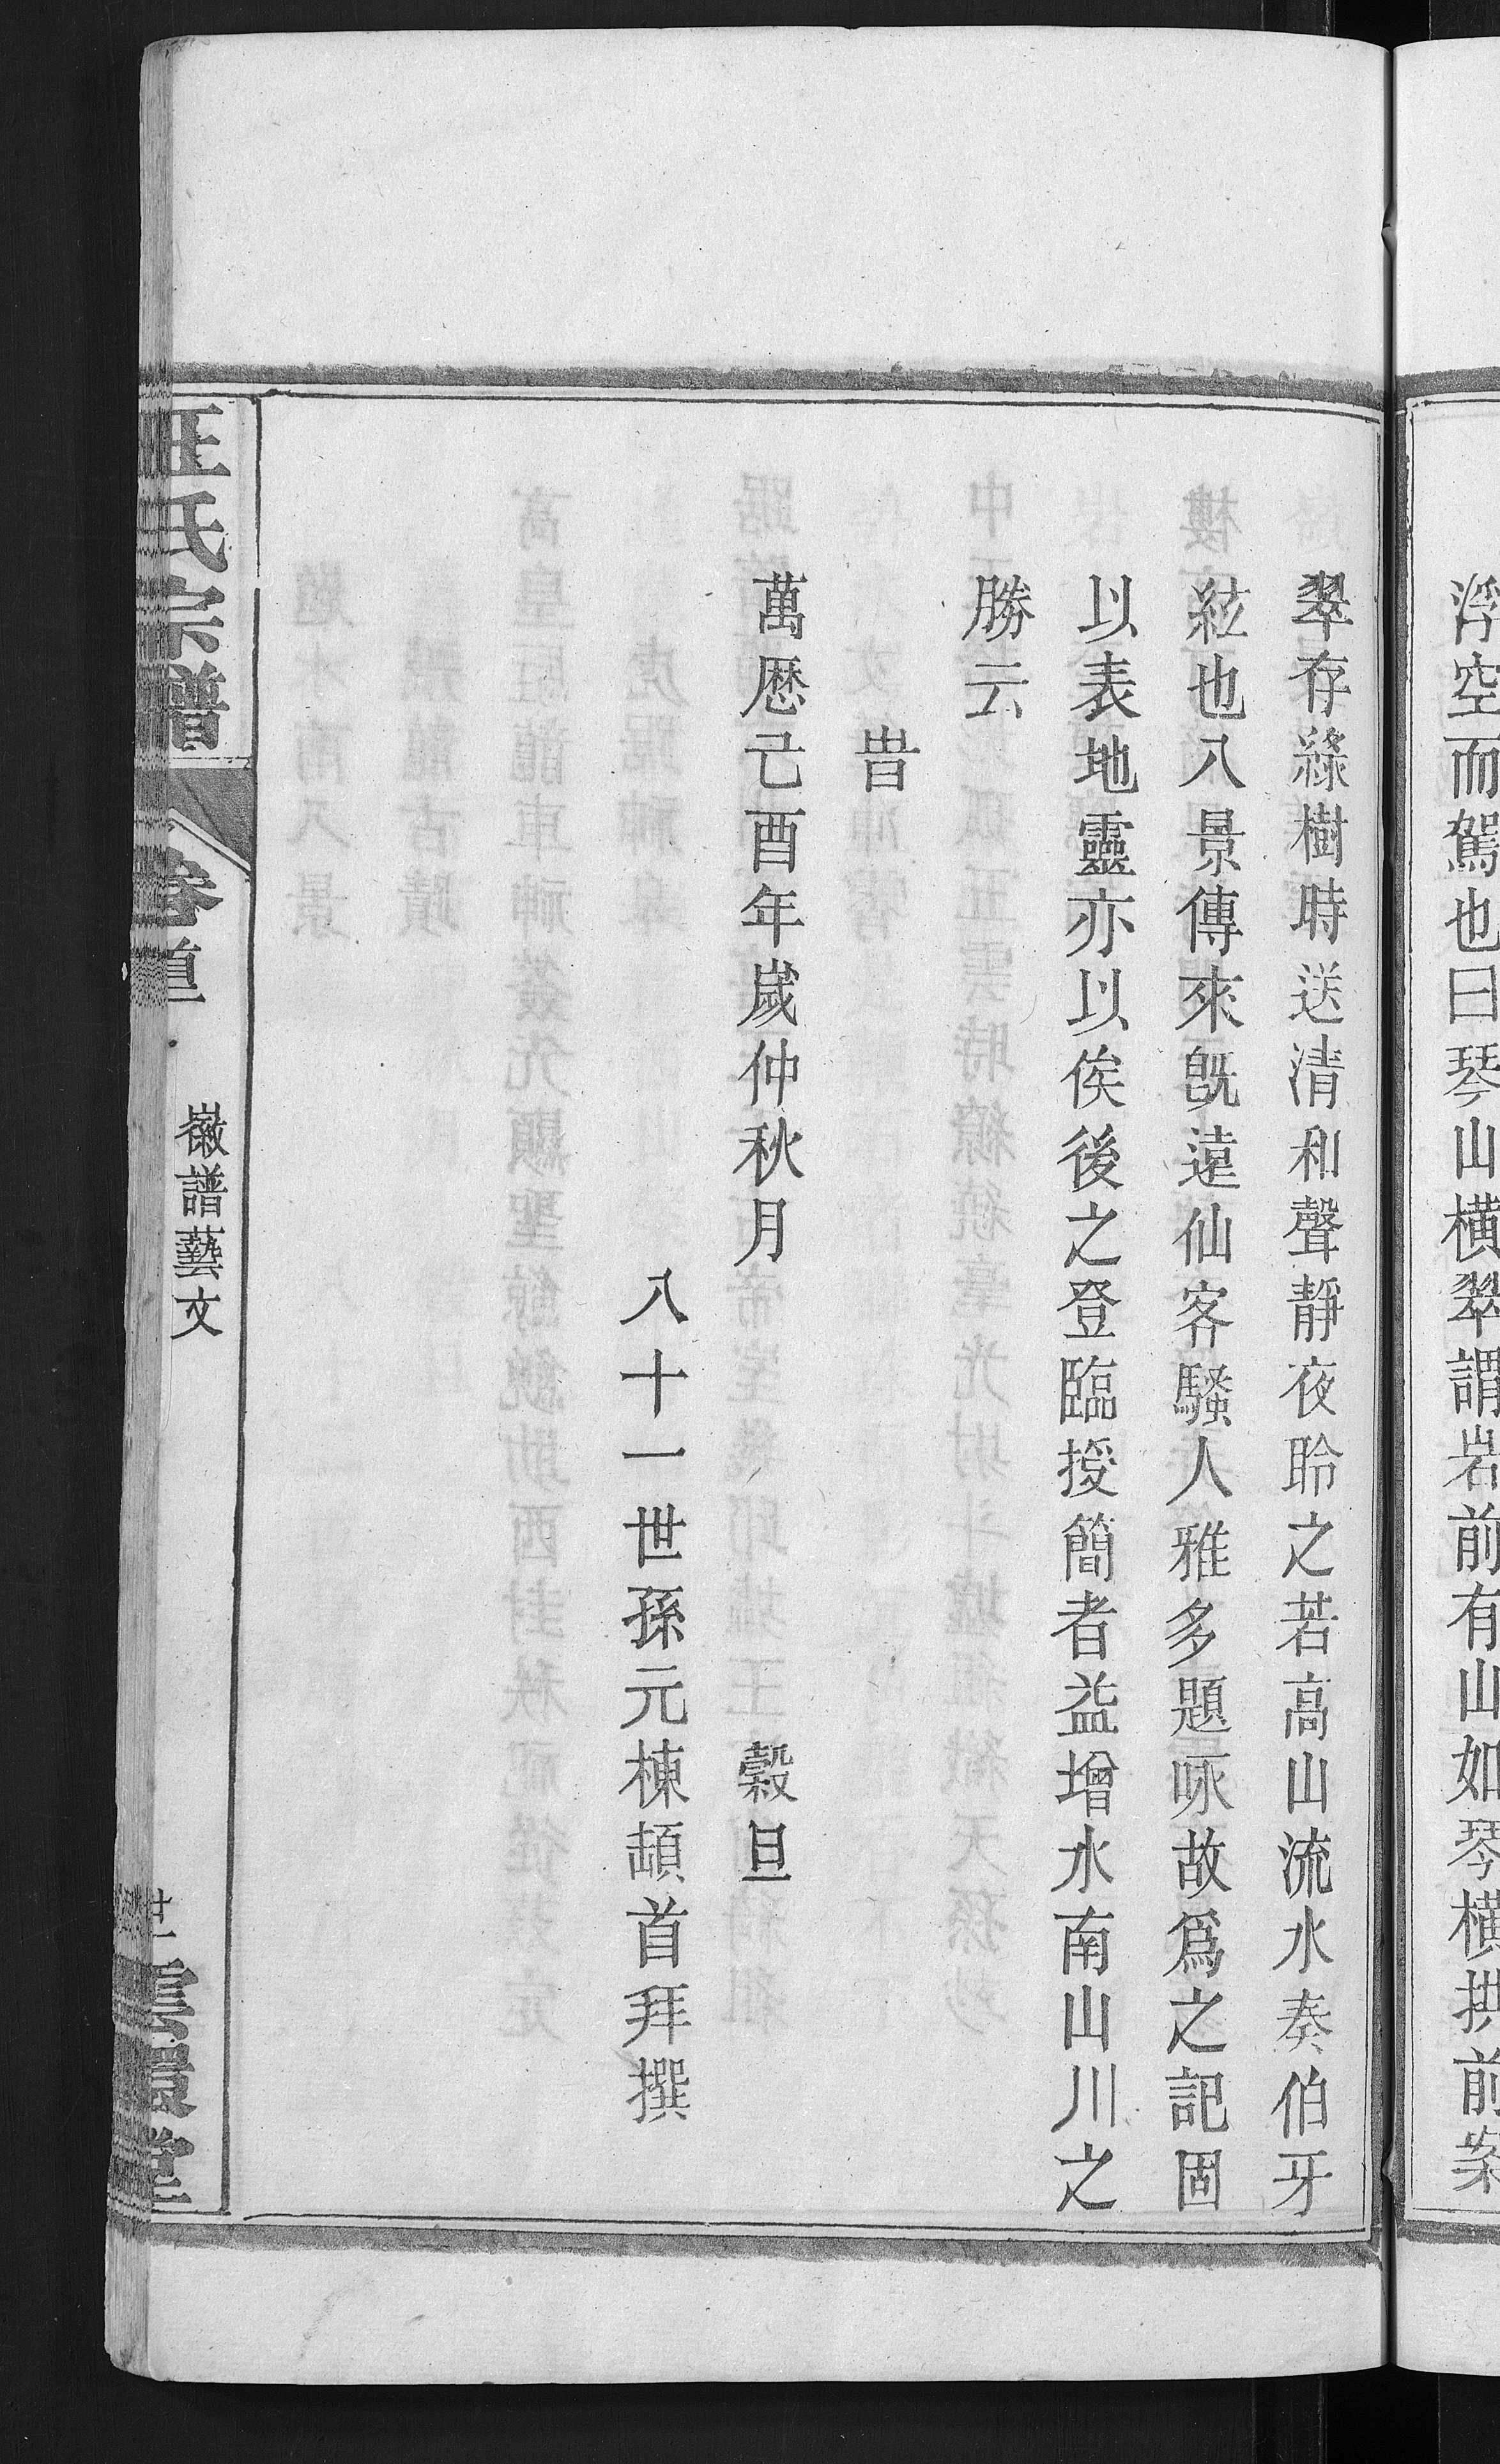 浮空而駕也曰琴山橫翠謂岩前有山如琴橫拱前案
翠存綠樹時送清和聲靜夜聆之若高山流水奏伯牙
絃也八景傳來旣遠仙客騷人雅多題咏故爲之記固
以表地靈亦以俟後之登臨授簡者益增水南山川之
勝云
旹
萬歷己酉年歲仲秋月　穀旦
八十一世孫元棟頓首拜撰
氏宗譜
卷首
徽譜藝文